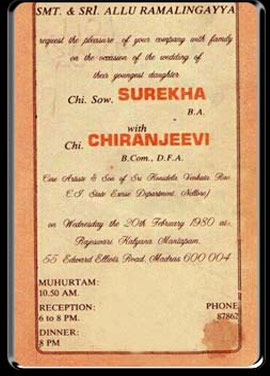 SMT. & SRI. ALLU RAMALINGAYYA
request the pleasure of your company with family
on the occasion of the wedding of
their youngest daughter
Chi. Sow. SUREKHA
B.A.
with
Chi. CHIRANJEEVI
B.Com., D.F.A.
Cine Artiste & Son of Sri Konidela Venkata Rao
C.I. State Excise Department, Nellore)
on Wednesday the 20th February 1980 at
Rajeswari Kalyana Mantapam,
55 Edward Elliots Road, Madras 600 004
MUHURTAM:
10.50 AM.
RECEPTION:
6 to 8 PM.
DINNER:
8 PM
PHONE
87862